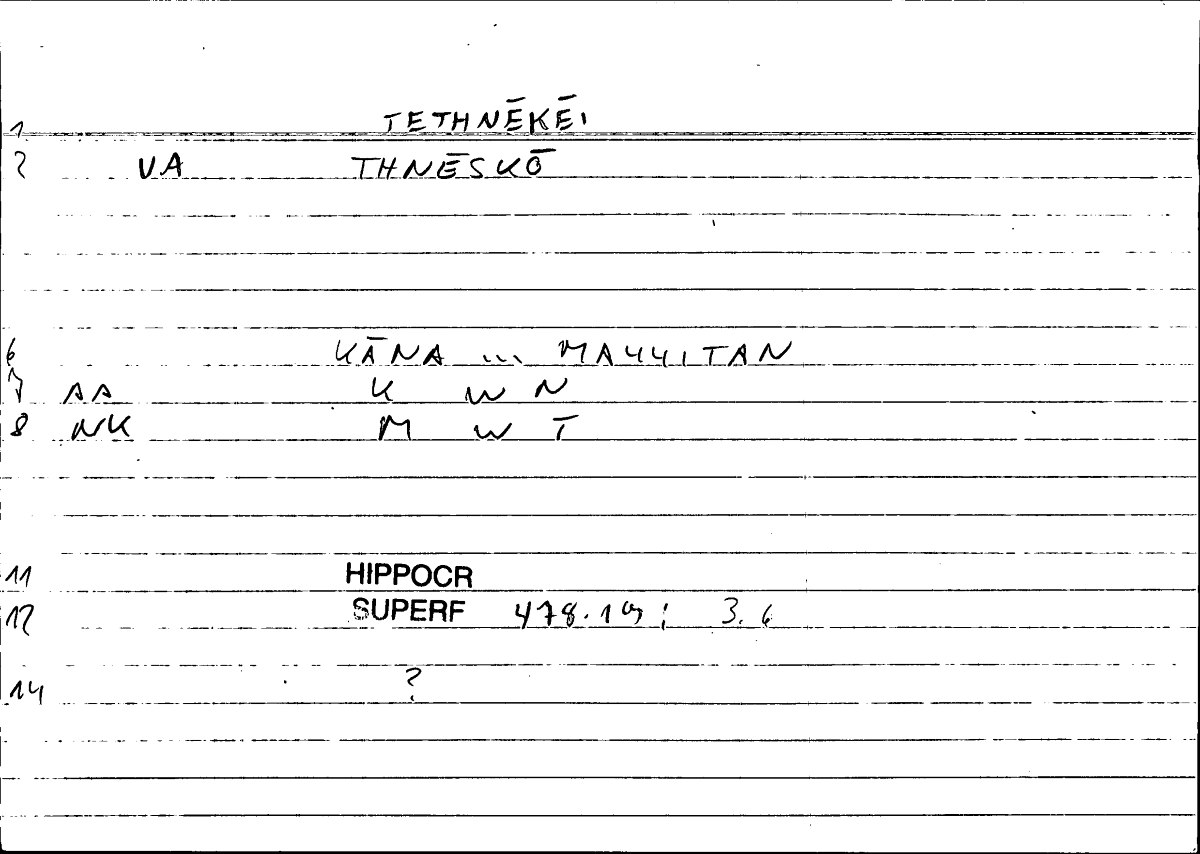 1 TETHNĒKĒI
2 VA THNĒSKŌ
6 KĀNA ... MAYYITAN
7 AA K W N
8 NK M W T
11 HIPPOCR
12 SUPERF 478.19; 3.6
14 ?